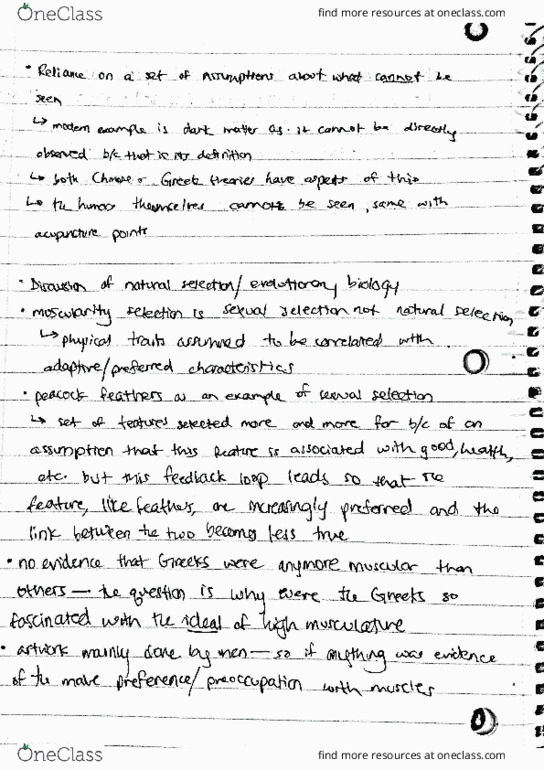 OneClass
find more resources at oneclass.com
• Reliance on a set of assumptions about what cannot be
seen
↳ modern example is dark matter as it cannot be directly
observed b/c that is its definition
↳ both Chinese & Greek theories have aspects of this
↳ the humors themselves cannot be seen, same with
acupuncture points
• Discussion of natural selection/evolutionary biology
• muscularity selection is sexual selection not natural selection
↳ physical traits assumed to be correlated with
adaptive/preferred characteristics
• peacock feathers as an example of sexual selection
↳ set of features selected more and more for b/c of an
assumption that this feature is associated with good, health,
etc. but this feedback loop leads so that the
feature, like feathers, are increasingly preferred and the
link between the two becomes less true
• no evidence that Greeks were anymore muscular than
others — the question is why were the Greeks so
fascinated with the ideal of high musculature
• artwork mainly done by men — so if anything was evidence
of the male preference/preoccupation with muscles
OneClass
find more resources at oneclass.com